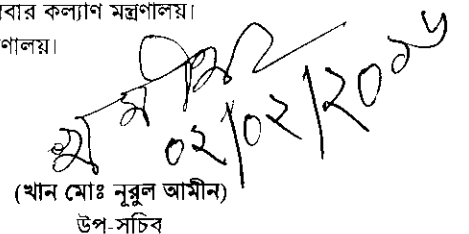 বার কল্যাণ মন্ত্রণালয়।
ণালয়।
০২/০২/২০১৬
(খান মোঃ নূরুল আমীন)
উপ-সচিব